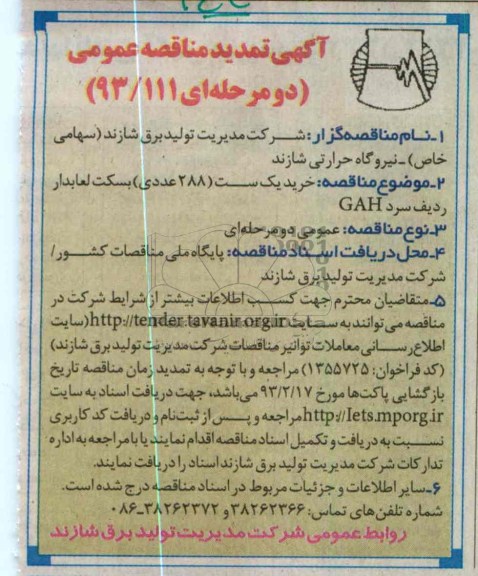 آگهی تمدید مناقصه عمومی
(دو مرحله‌ای ۹۳/۱۱۱)
۱ـ نـام مناقصه‌گزار: شـرکت مدیریت تولید برق شازند (سهامی
خاص) ـ نیروگاه حرارتی شازند
۲ـ موضوع مناقصه: خرید یک ست (۲۸۸ عددی) بسکت لعابدار
ردیف سرد GAH
۳ـ نوع مناقصه: عمومی دو مرحله‌ای
۴ـ محل دریافت اسـناد مناقصه: پایگاه ملی مناقصات کشـور/
شرکت مدیریت تولید برق شازند
۵ـ متقاضیان محترم جهت کسـب اطلاعات بیشتر از شرایط شرکت در
مناقصه می‌توانند به سـایت http://tender.tavanir.org.ir (سایت
اطلاع‌رسـانی معاملات توانیر مناقصات شرکت مدیریت تولید برق شازند)
(کد فراخوان: ۱۳۵۵۷۲۵) مراجعه و با توجه به تمدید زمان مناقصه تاریخ
بازگشایی پاکت‌ها مورخ ۹۳/۲/۱۷ می‌باشد، جهت دریافت اسناد به سایت
http://Iets.mporg.ir مراجعه و پـس از ثبت‌نام و دریافت کد کاربری
نسـبت به دریافت و تکمیل اسناد مناقصه اقدام نمایند یا با مراجعه به اداره
تدارکات شرکت مدیریت تولید برق شازند اسناد را دریافت نمایند.
۶ـ سایر اطلاعات و جزئیات مربوط در اسناد مناقصه درج شده است.
شماره تلفن‌های تماس: ۳۸۲۶۲۳۶۶ و ۳۸۲۶۲۳۷۲ـ۰۸۶
روابط عمومی شرکت مدیریت تولید برق شازند